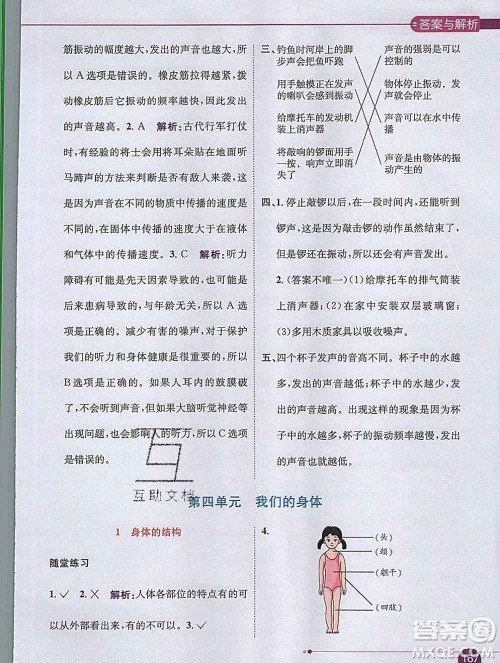 答案与解析
筋振动的幅度越大，发出的声音也越大，所
以 A 选项是错误的。橡皮筋拉得越紧，拨
动橡皮筋后它振动的频率越快，因此发出
的声音越高。2. A 解析：古代行军打仗
时，有经验的将士会用耳朵贴在地面听
马蹄声的方法来判断是否有敌人来袭，这
是因为声音在不同的物质中传播的速度
是不同的，在固体中传播的速度大于在液
体和气体中的传播速度。3. C 解析：听力
障碍有可能是先天因素导致的，也可能是
后天来患病，与年龄无关，所以 A 选项是
错误的。并不是所有的声音都对我们有
益，比如生活中有害的噪声，噪声对我
们的听力和身体健康是很重要的，所以
B 选项是错误的。如果人耳内的鼓膜破
了，则听不到声音，或者听觉神经等受
损，也会影响人的听力，所以 C 选项是正
确的。
三、钓鱼时河岸上的脚步声会把鱼吓跑
用手触摸正在发声的喇叭会感到振动
给摩托车的发动机装上消声器
将敲响的锣面用手一按，响声立即消失
声音的强弱是可以控制的
物体停止振动，声音停止
声音可以在水中传播
声音是由物体的振动产生的
四、1. 停止敲锣以后，在一段时间内，还能听到
锣声，这是因为敲击锣的动作虽然结束
了，但是锣面依然在振动，所以会继续
发出声音。
2. (答案不唯一)(1)给摩托车的排气筒装
上消声器；(2)在家中安装双层玻璃窗；
(3)戴防噪声耳罩。
五、四个杯子发声的音高不同。杯子中的水越
多，声音越低；杯子中的水越少，声音
越高。之所以出现这样的现象，是因为杯
子中的水越多，杯子振动的频率越慢，发
出的声音也就越低。
互助文档
第四单元 我们的身体
1 身体的结构
随堂练习
1. ✓ 2. ✕ 解析：人体各部位的特点有的可以
从外部看出来，有的不可以。3. ✓
4.
(头)
(颈)
(躯干)
(四肢)
答案圈
MXQE.COM
167